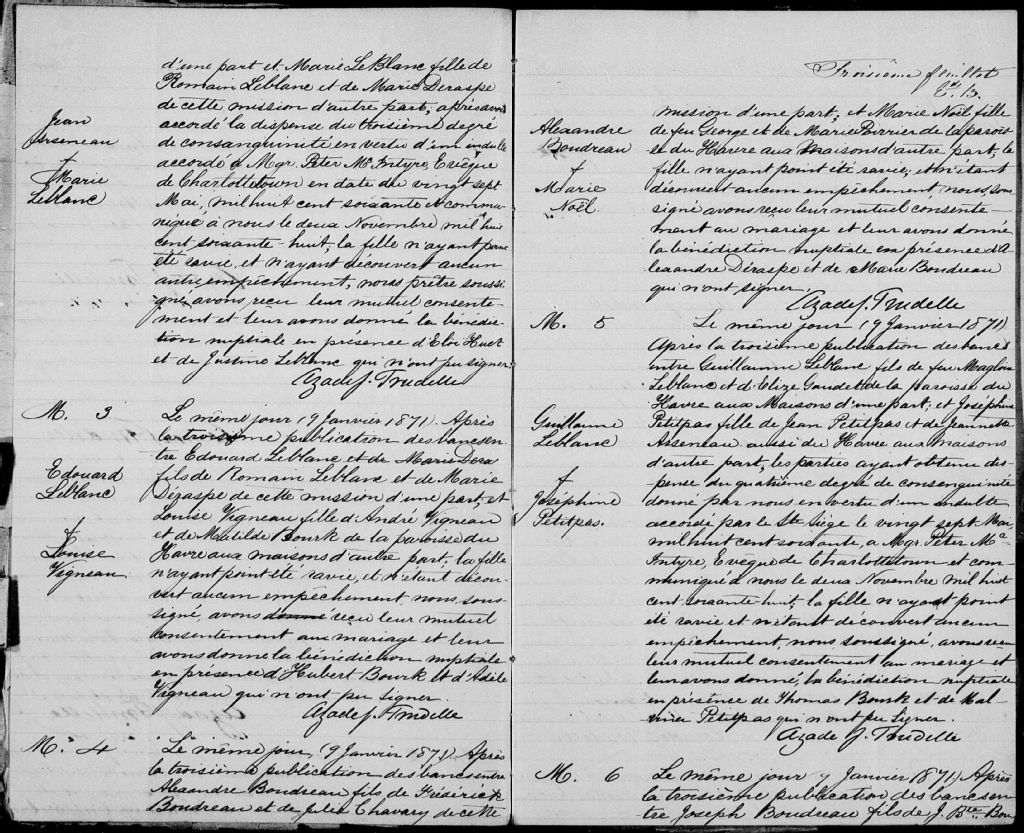 d'une part et Marie LeBlanc fille de
Romain Leblanc et de Marie Deraspe
de cette mission d'autre part, après avoir
accordé la dispense du troisième degré
de consanguinité en vertu d'un indulte
accordé à Mgr. Peter Mc Intyre, Evêque
de Charlottetown en date du vingt sept
Mai, mil huit cent soixante et commu-
niqué à nous le deux Novembre mil huit
cent soixante huit, la fille n'ayant point
été ravie, et n'ayant découvert aucun
autre empêchement, nous prêtre soussi
gné avons reçu leur mutuel consente-
ment et leur avons donné la bénédic-
tion nuptiale en présence d'Eloi Huet
et de Justine Leblanc qui n'ont pu signer
Azade J. Trudelle
Jean
Arseneau
†
Marie
Leblanc
M. 3
Le même jour (9 Janvier 1871) Après
la troisième publication des bans en-
tre Edouard Leblanc et de Marie Dera
fils de Romain Leblanc et de Marie
Déraspe de cette mission d'une part, et
Louise Vigneau fille d'André Vigneau
et de Matilde Bourk de la paroisse du
Havre aux maisons d'autre part, la fille
n'ayant point été ravie, et n'étant décou-
vert aucun empêchement, nous, sous-
signé, avons donné reçu leur mutuel
consentement au mariage et leur
avons donné la bénédiction nuptiale
en présence d'Hubert Bourk et d'Adèle
Vigneau qui n'ont pu signer
Azade J. Trudelle
Edouard
Leblanc
†
Louise
Vigneau
M. 4
Le même jour, (9 Janvier 1871) Après
la troisième publication des bans entre
Alexandre Boudreau fils de Fréderick
Boudreau et de Julie Chavary de cette
Troisième feuillet
mission d'une part, et Marie Noël fille
de feu George et de Marie Pirrier de la paroisse
du Havre aux Maisons d'autre part, la
fille n'ayant point été ravie, et n'étant
découvert aucun empêchement, nous, sous
signé avons reçu leur mutuel consente-
ment au mariage et leur avons donné
la bénédiction nuptiale en présence d'A
lexandre Déraspe et de Marie Boudreau
qui n'ont signer.
Azade J. Trudelle
Alexandre
Boudreau
†
Marie
Noël
M. 5
Le même jour (9 Janvier 1871)
Après la troisième publication des bancs
entre Guillaume Leblanc fils de feu Magloir
Leblanc et d'Elize Gaudet de la paroisse du
Havre aux Maisons d'une part; et Joséphine
Petitpas fille de Jean Petitpas et de Jeannette
Arseneau aussi du Havre aux maisons
d'autre part, les parties ayant obtenu dis-
pense du quatrième degré de consenguinité
donné par nous en vertu d'un indulte
accordé par le Ste Siége le vingt sept Mai,
mil huit cent soixante, a Mgr. Peter Mc
Intyre, Evêque de Charlottetown et com-
muniqué à nous le deux Novembre mil huit
cent soixante huit, la fille n'ayant point
été ravie et n'étant découvert aucun
empêchement, nous, soussigné, avons reçu
leur mutuel consentement au mariage et
leur avons donné, la bénédiction nuptiale
en présense de Thomas Bourk et de Mal-
vina Petitpas qui n'ont pu Signer.
Azade J. Trudelle
Guillaume
Leblanc
†
Joséphine
Petitpas.
M. 6
Le même jour 9 Janvier 1871) Après
la troisième publication des bans en-
tre Joseph Boudreau fils de J. Bte Bou